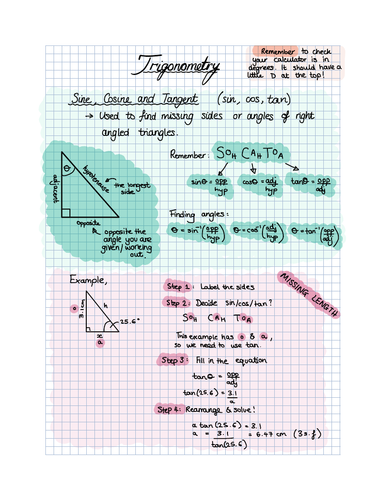 Trigonometry
Remember to check
your calculator is in
degrees. It should have a
little D at the top!
Sine, Cosine and Tangent (sin, cos, tan)
→ Used to find missing sides or angles of right
angled triangles.
Remember: SOH CAH TOA
sinθ = opp/hyp cosθ = adj/hyp tanθ = opp/adj
adjacent
hypotenuse
θ
the longest
side
opposite
opposite the
angle you are
given/working
out.
Finding angles:
θ = sin⁻¹(opp/hyp) θ = cos⁻¹(adj/hyp) θ = tan⁻¹(opp/adj)
Example,
MISSING LENGTH
o
3.1cm
h
25.6°
x
a
Step 1: Label the sides
Step 2: Decide sin/cos/tan?
SOH CAH TOA
This example has o & a,
so we need to use tan.
Step 3: Fill in the equation
tanθ = opp/adj
tan(25.6) = 3.1/a
Step 4: Rearrange & solve!
a tan(25.6) = 3.1
a = 3.1/tan(25.6) = 6.47 cm (3s.f)